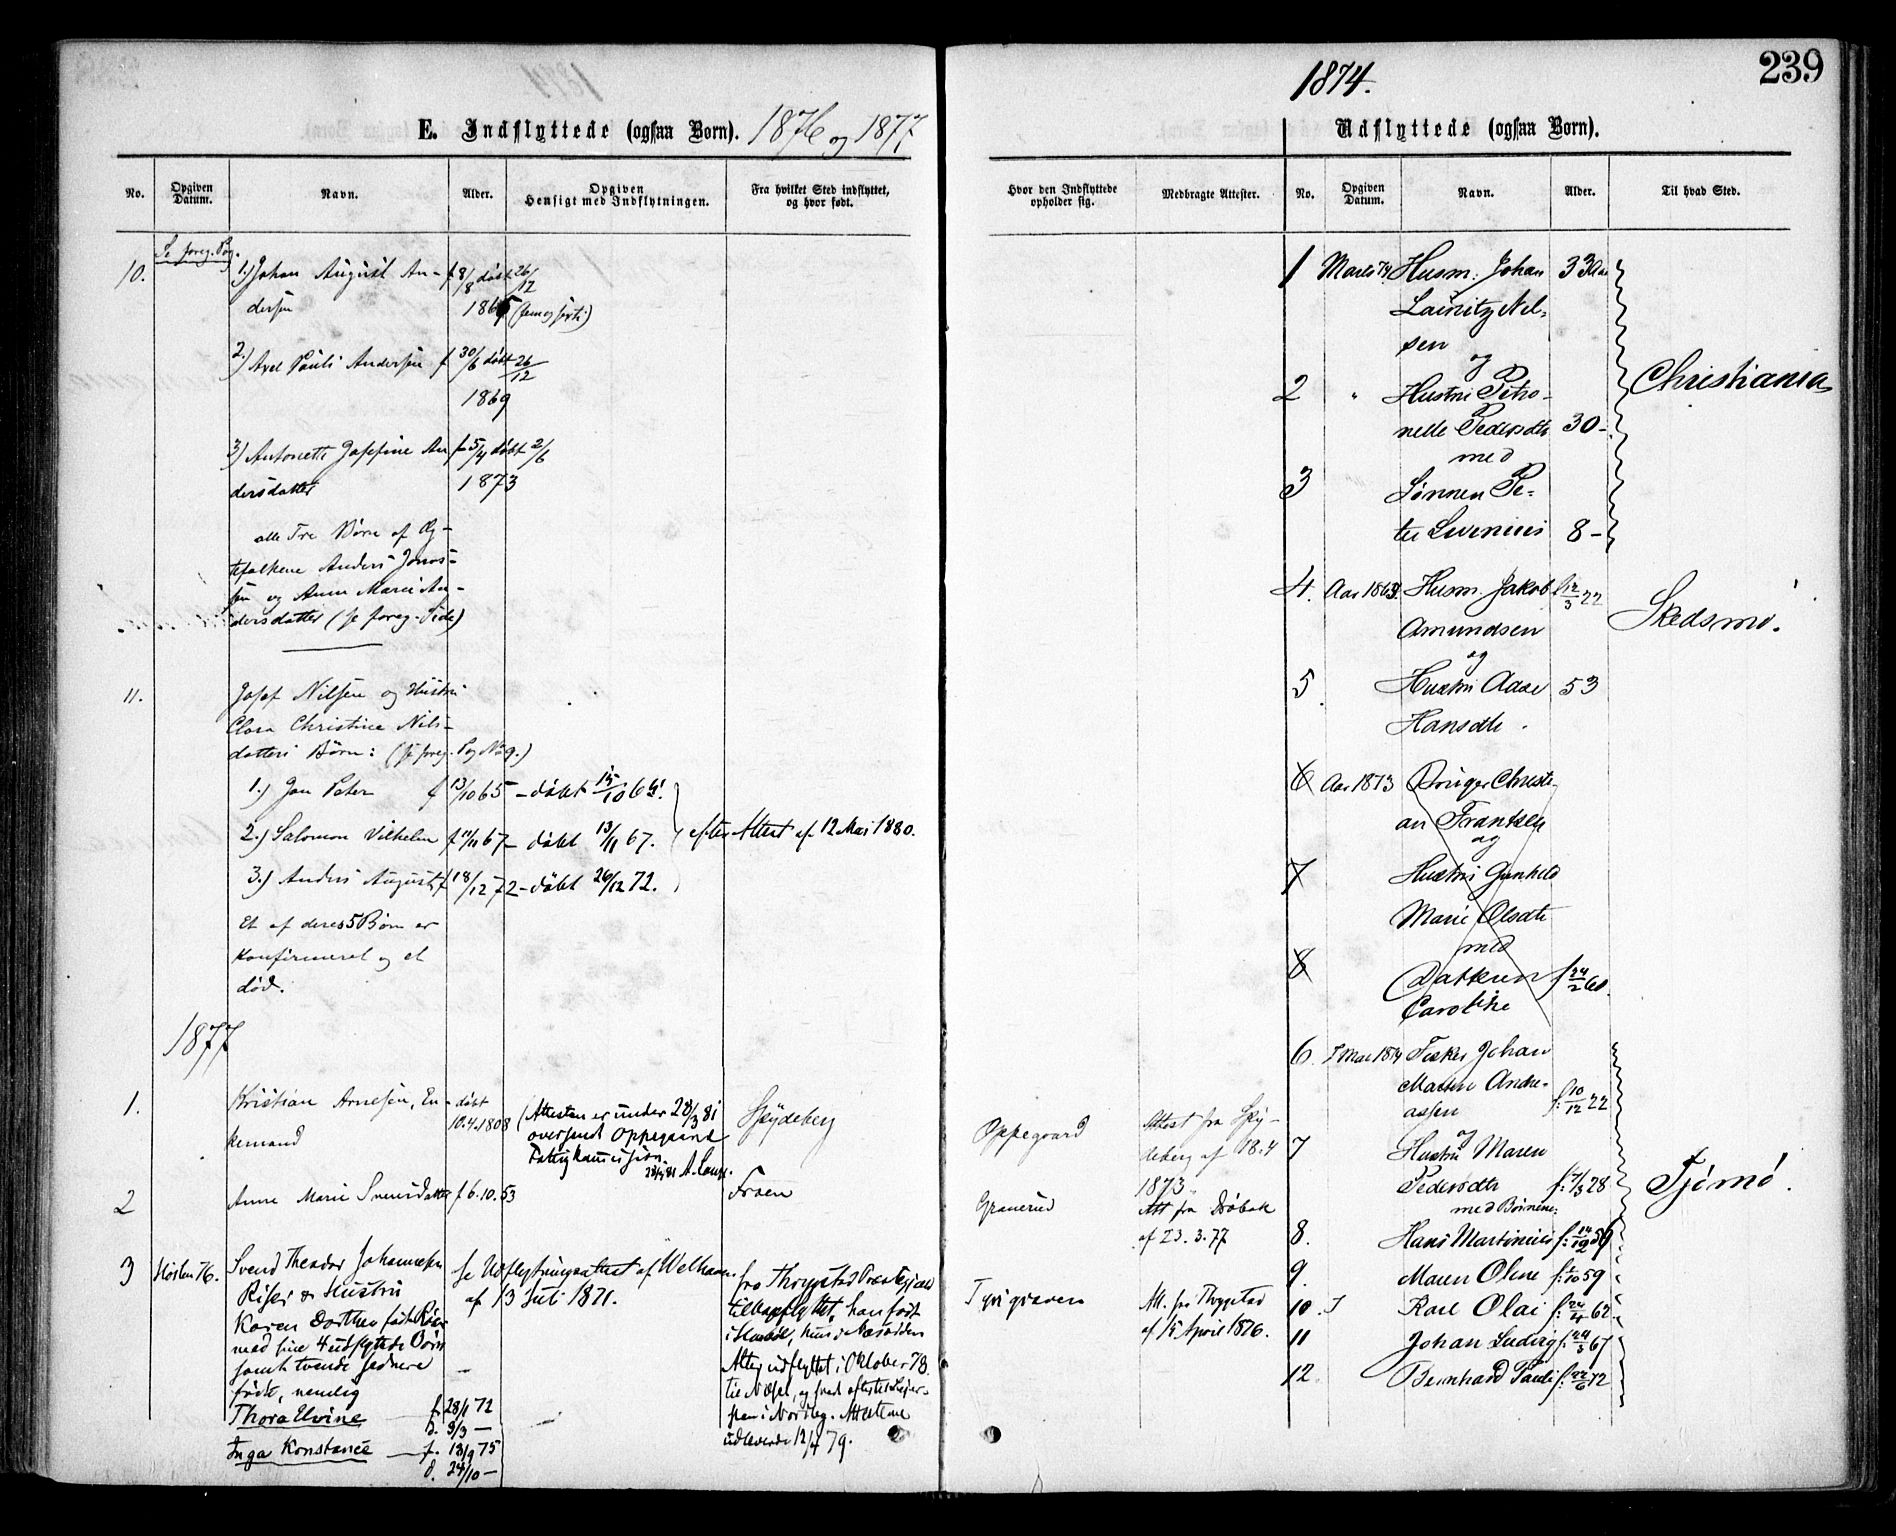 239
1874.
E. Indflyttede (ogsaa Børn). 1876 og 1877
Udflyttede (ogsaa Børn).
No.
Opgiven Datum.
Navn.
Alder.
Opgiven Hensigt med Indflytningen.
Fra hvilket Sted indflyttet, og hvor født.
Hvor den Indflyttede opholder sig.
Medbragte Attester.
No.
Opgiven Datum.
Navn.
Alder.
Til hvad Sted.
Se foreg. Pag.
10. 1.) Johan August An- f 8/8 døbt 26/12
dersen 1865 (hjemme
2.) Axel Pauli Andersen f 30/6 døbt 26/12
1869
3) Antonette Josefine An f 5/4 døbt 2/6
dersdatter 1873
alle Tre Børn af Æg-
tefolkene Anders Jonas-
sen og Anne Marie An-
dersdatter (se foreg. Side)
11. Josef Nilsen og Hustru
Clara Christine Nils-
datters Børn: (se foreg. Pag No 9.)
1.) Jan Peter f 13/10 65 - døbt 15/10 65.
2.) Salomon Vilhelm f 11/11 67 - døbt 13/11 67. efter Attest af 12 Mai 1880.
3.) Anders August f 18/12 72 - døbt 26/12 72.
Et af deres 5 Børn er
konfirmeret og et
død.
1877
1. Kristian Arnesen, En- døbt (Attesten er under 28/3 81 Spydeberg
kemand 10.4.1808 oversendt Oppegaard
Fattigkommission.
28/3 81 A. Lange.
Oppegaard Attest fra Spy-
deberg af 18.4
1873.
2 Anne Marie Svensdatter f 6.10.53 Fraen
Granerud Att fra Drøbak
af 23.3.77
3 Høsten 76. Svend Theodor Johannesen se Udflytningsattest af Welhaven fra Thrygstad Præstegjæld
Riser & Hustru af 13 Juli 1871. tilbageflyttet, han født
Karen Dorthea født Røer i Haabøl, hun i Næsodden
med sine 4 udflyttede Børn Atter udflyttet i Oktober 78
samt tvende sednere til Næsset, og
fødte, nemlig
Thora Elvine f. 28/1 72
d. 3/3 —
Inga Konstance — f. 13/9 75
d. 24/10 —
udleveret 12/4 79.
Tyrigraven Att. fra Thrygstad
af 15 April 1876.
1 Marts 74 Husm. Johan 33 Aar
Lauritz Nil-
sen
og
2 " Hustru Petro-
nelle Pedersdtr 30-
med
3 Sønnen Pe-
ter Severinus 8-
Christiania
4. Aar 1863 Husm. Jakob f 12/3 22
Amundsen
og
5. Hustru Aase 53
Hansdtr.
Skedsmo.
6 Aar 1873 Bruger Christi-
an Frantsen
og
7 Hustru Gunhild
Marie Olsdtr
med
8 Datteren f 24/2 60.
Caroline
6. Mai 1874 Fisker Johan
Martin Andre-
assen f. 10/12 22
og
7 Hustru Maren
Pedersdtr f. 7/3 28
med Børnene:
8. Hans Martinius f. 14/12 56
9. Maren Oline f. 1/10 59
10. Karl Olai f. 24/4 62
11 Johan Ludvig f. 24/3 67
12. Bernhard Pauli f. 22/6 72
Tjømø.